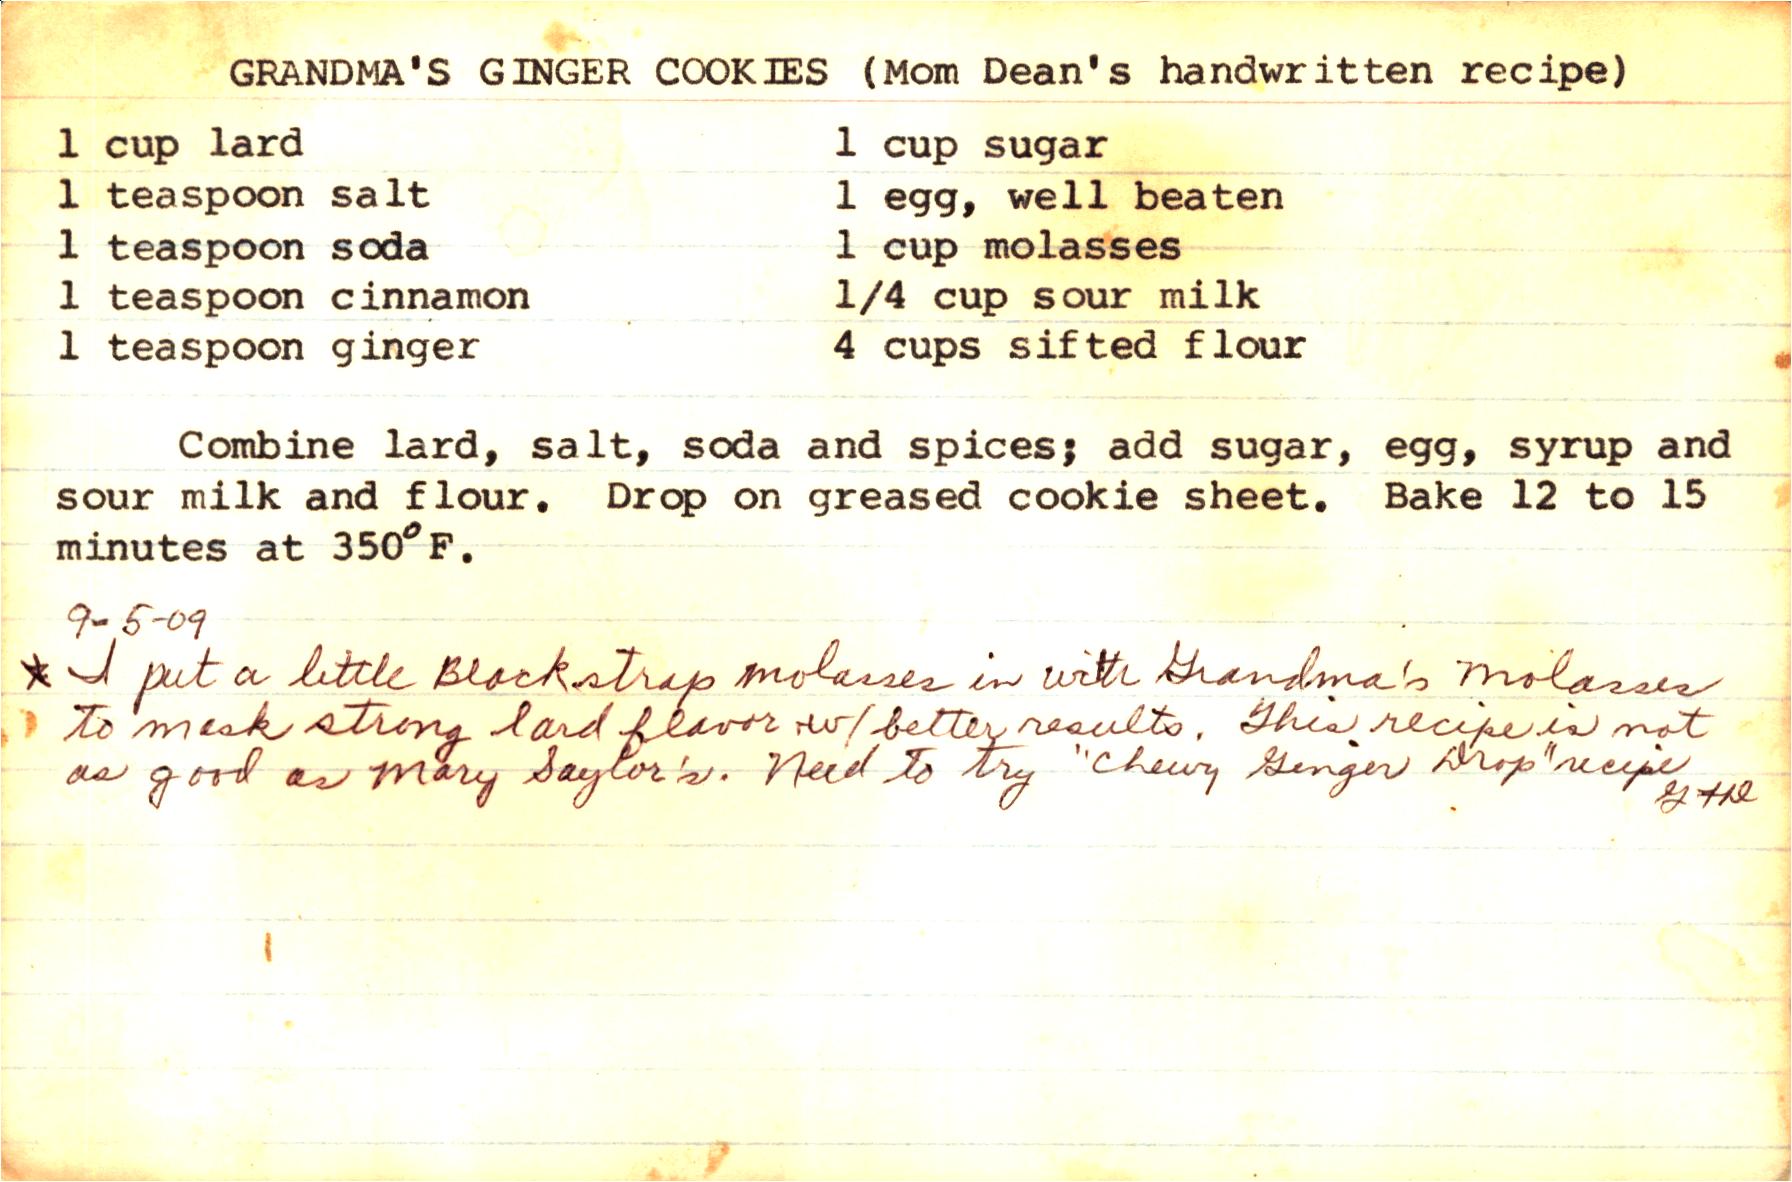 GRANDMA'S GINGER COOKIES (Mom Dean's handwritten recipe)
1 cup lard 1 cup sugar
1 teaspoon salt 1 egg, well beaten
1 teaspoon soda 1 cup molasses
1 teaspoon cinnamon 1/4 cup sour milk
1 teaspoon ginger 4 cups sifted flour
Combine lard, salt, soda and spices; add sugar, egg, syrup and
sour milk and flour. Drop on greased cookie sheet. Bake 12 to 15
minutes at 350°F.
9-5-09
* I put a little Blackstrap molasses in with Grandma's Molasses
to mask strong lard flavor w/ better results. This recipe is not
as good as Mary Saylor's. Need to try "Chewy Ginger Drop" recipe